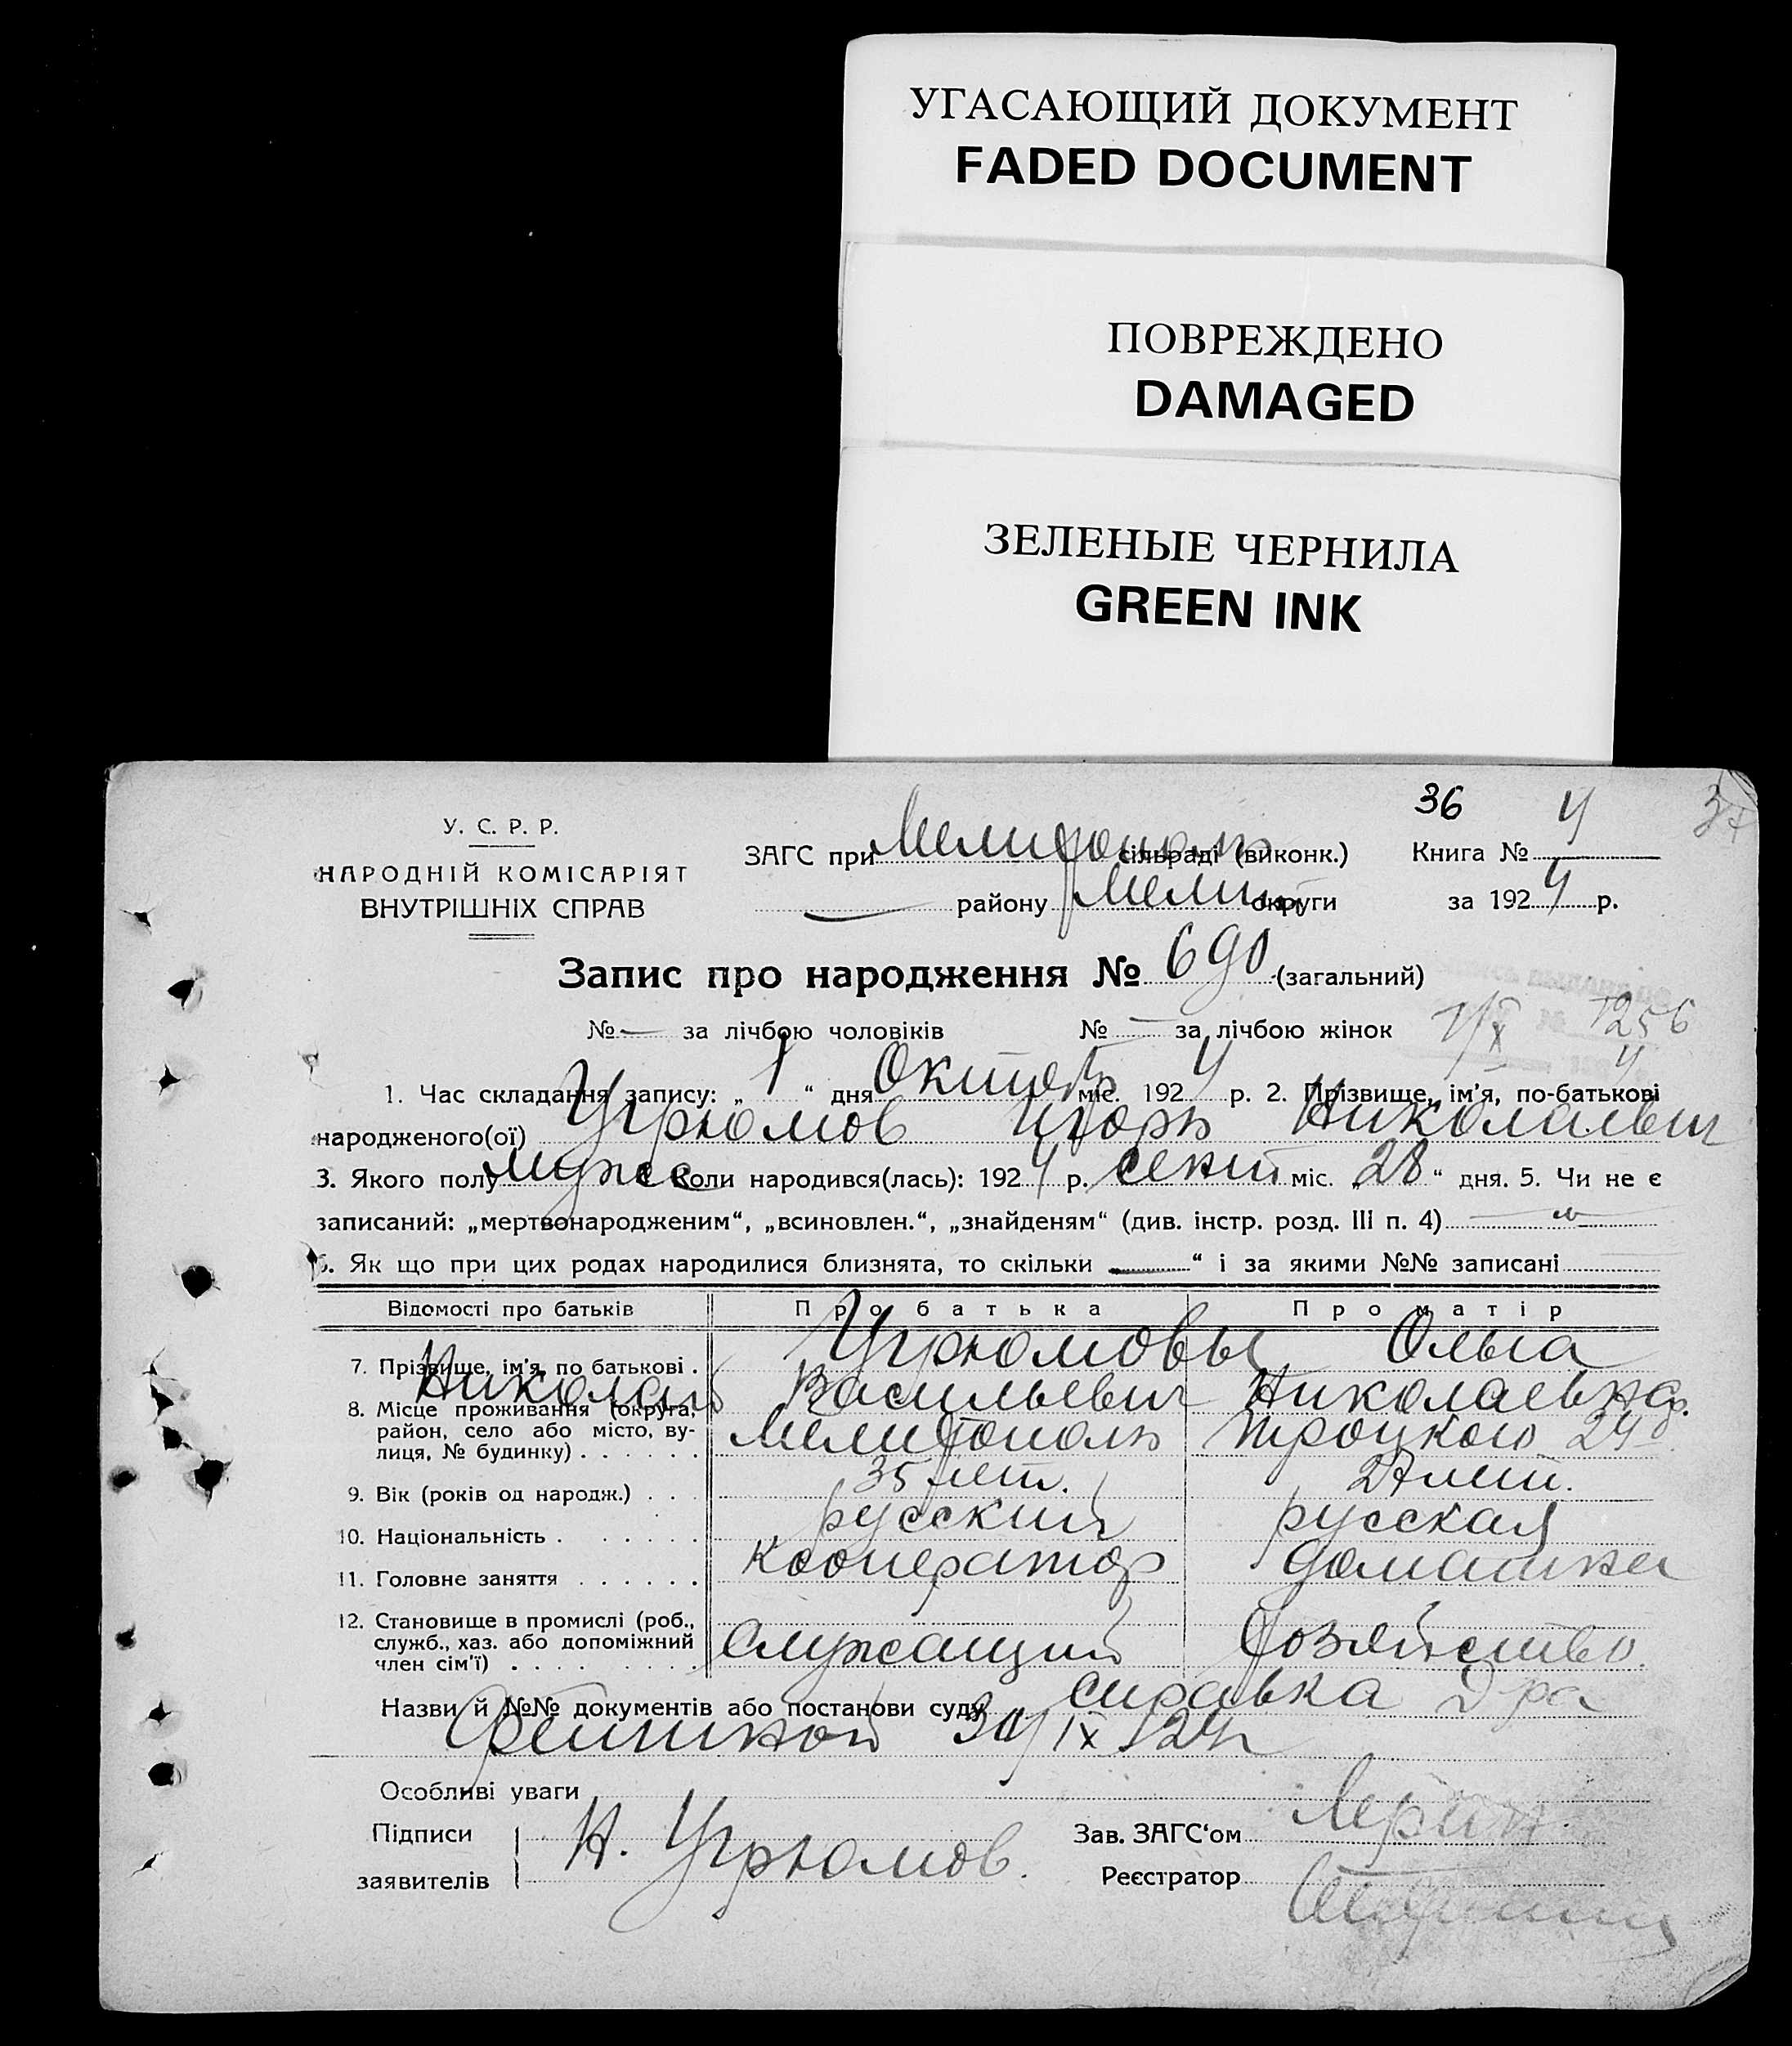 УГАСАЮЩИЙ ДОКУМЕНТ
FADED DOCUMENT
ПОВРЕЖДЕНО
DAMAGED
ЗЕЛЕНЫЕ ЧЕРНИЛА
GREEN INK
36
У. С. Р. Р.
НАРОДНІЙ КОМІСАРІЯТ
ВНУТРІШНІХ СПРАВ
ЗАГС при Мелитополь сільраді (виконк.) Книга № 4
району Мелит округи за 1924 р.
Запис про народження № 690 (загальний)
№ — за лічбою чоловіків № — за лічбою жінок
1. Час складання запису: „ 1 “ дня Октяб міс. 1924 р. 2. Прізвище, ім'я, по-батькові
народженого(ої) Угрюмов Игорь Николаевич
3. Якого полу муже Коли народився(лась): 1924 р. сент міс. „ 28 “ дня. 5. Чи не є
записаний: „мертвонародженим“, „всиновлен.“, „знайденям“ (див. інстр. розд. III п. 4)
6. Як що при цих родах народилися близнята, то скільки — “ і за якими №№ записані
Відомості про батьків Про батька Про матір
7. Прізвище, ім'я, по батькові . Угрюмовы Ольга
Николай Васильевич Николаевна
8. Місце проживання (округа, район, село або місто, вулиця, № будинку) . . . . . . Мелитополь Троцкого 24
9. Вік (років од народж.) . . . 35 лет. 27 лет.
10. Національність . . . . . . русский русская
11. Головне заняття . . . . . . кооператор домашнее
12. Становище в промислі (роб., служб., хаз. або допоміжний член сім'ї) . . . . . . . . служащий хозяйство
Назви й №№ документів або постанови суду справка Д-ра
30/IX 24
Особливі уваги
Підписи
заявителів Н. Угрюмов.
Зав. ЗАГС‘ом
Реєстратор